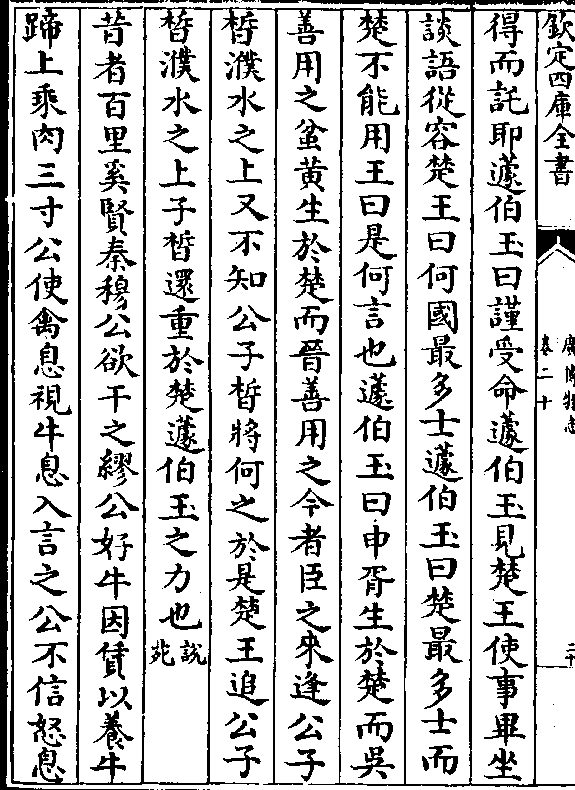 欽定四庫全書
廣博物志
卷二十
二十
得而託耶蘧伯玉曰謹受命蘧伯玉見楚王使事畢坐
談語從容楚王曰何國最多士蘧伯玉曰楚最多士而
楚不能用王曰是何言也蘧伯玉曰申胥生於楚而吳
善用之蚠黃生於楚而晉善用之今者臣之來逢公子
晳濮水之上又不知公子晳將何之於是楚王追公子
晳濮水之上子晳還重於楚蘧伯玉之力也說苑
昔者百里奚賢秦穆公欲干之繆公好牛因賃以養牛
蹄上乘肉三寸公使禽息視牛息入言之公不信怒息